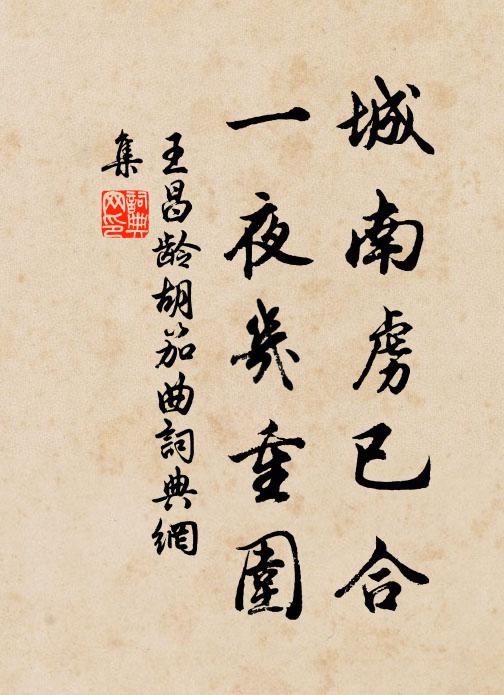 城南虜已合
一夜幾重圍
王昌龄胡笳曲詞典網
集
詞典
网印